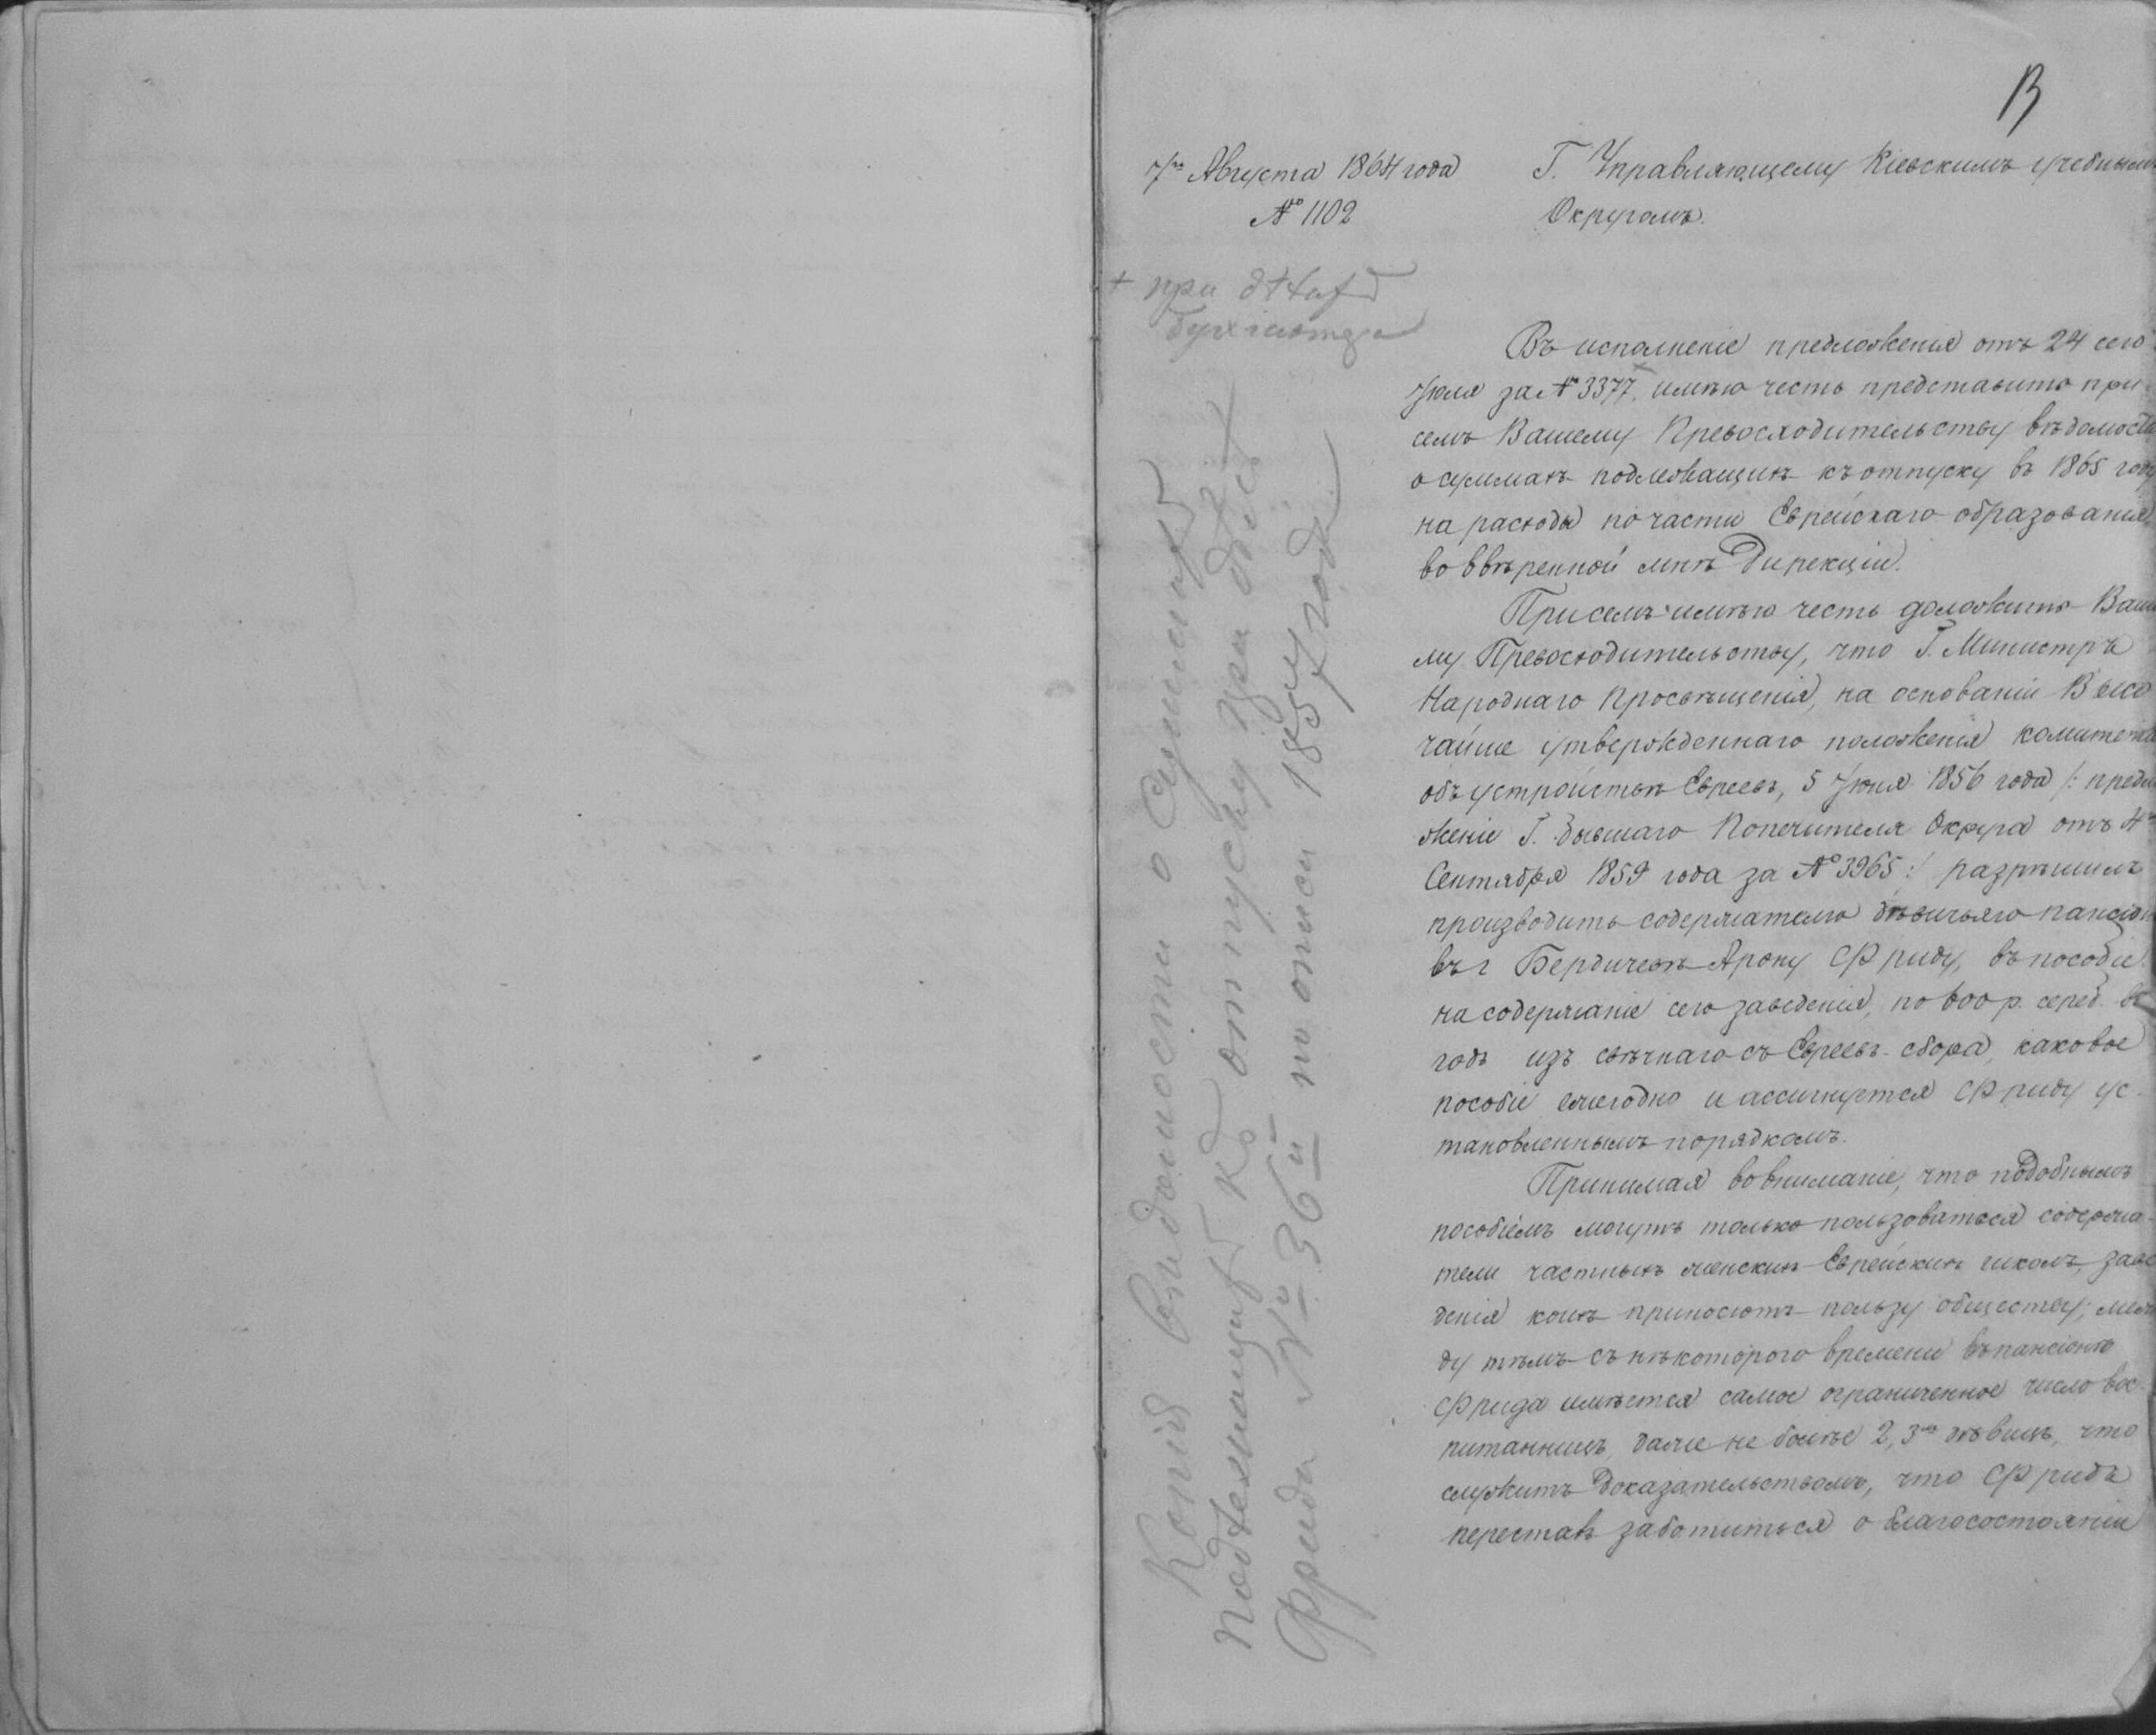 13
7го Августа 1864 года
№ 1102
Г. Управляющему Кіевскимъ учебнымъ
Округомъ.
+ при дѣлахъ
бухгалтера
Въ исполненіе предложенія отъ 24 сего
Іюля за № 3377, имѣю честь представить при
семъ Вашему Превосходительству вѣдомость
о суммахъ подлежащихъ къ отпуску въ 1865 году
на расходы по части Еврейскаго образованія
во ввѣренной мнѣ Дирекціи.
При семъ имѣю честь доложить Ваше
му Превосходительству, что Г. Министръ
Народнаго Просвѣщенія, на основаніи Высо
чайше утвержденнаго положенія комитета
объ устройствѣ Евреевъ, 5 Іюня 1856 года /: предло
женіе Г. бывшаго Попечителя Округа отъ 4го
Сентября 1859 года за № 3965 :/ разрѣшилъ
производить содержателю дѣвичьяго пансіона
въ г Бердичевѣ Арону Фриду, въ пособіе
на содержаніе сего заведенія, по 600 р. сереб. въ
годъ изъ свѣчнаго съ Евреевъ сбора, каковое
пособіе ежегодно и ассигнуется Фриду ус-
тановленнымъ порядкомъ.
Принимая во вниманіе, что подобнымъ
пособіемъ могутъ только пользоваться содержа-
тели частныхъ женскихъ Еврейскихъ школъ, заве
денія коихъ приносятъ пользу обществу; меж
ду тѣмъ съ нѣкоторого времени въ пансіонѣ
Фрида имѣется самое ограниченное число вос
питанницъ, даже не болѣе 2, 3хъ дѣвицъ, что
служитъ доказательствомъ, что Фридъ
переставъ заботиться о благосостояніи
Копія вѣдомости о суммахъ
подлежащихъ къ отпуску при дѣлѣ
Фрида № 36й по описи 1857 года.